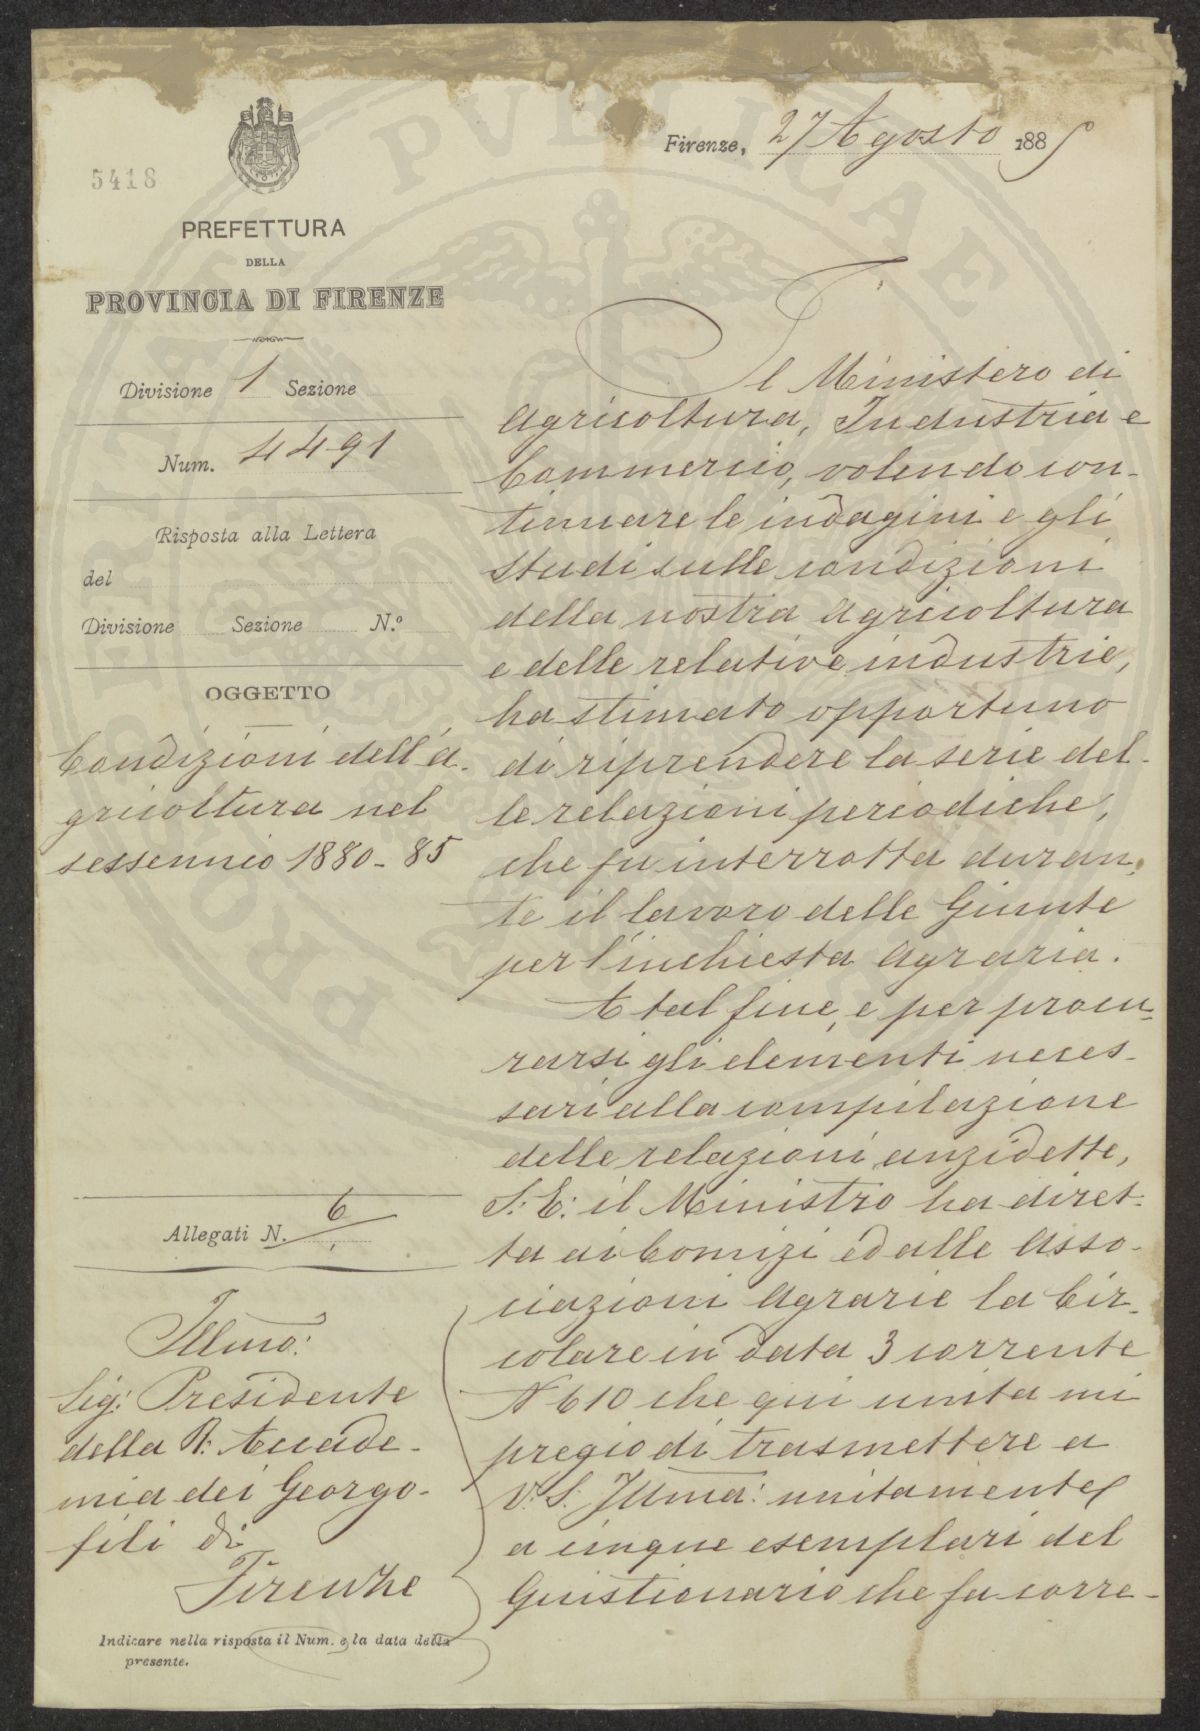 Firenze, 27 Agosto 1885
5418
PREFETTURA
DELLA
PROVINCIA DI FIRENZE
Divisione 1 Sezione
Num. 4491
Risposta alla Lettera
del
Divisione Sezione N.º
OGGETTO
Condizioni dell'a-
gricoltura nel
sessennio 1880-85
Allegati N. 6
Illmo:
Sig: Presidente
della R: Accade-
mia dei Georgo-
fili di
Firenze
Indicare nella risposta il Num. e la data della
presente.
Il Ministero di
Agricoltura, Industria e
Commercio, volendo con-
tinuare le indagini e gli
studi sulle condizioni
della nostra agricoltura
e delle relative industrie,
ha stimato opportuno
di riprendere la serie del-
le relazioni periodiche,
che fu interrotta duran-
te il lavoro delle Giunte
per l'inchiesta Agraria.
A tal fine, e per procu-
rarsi gli elementi neces-
sari alla compilazione
delle relazioni anzidette,
S: E: il Ministro ha diret-
ta ai Comizi ed alle Asso-
ciazioni Agrarie la Cir-
colare in data 3 corrente
N 610 che qui unita mi
pregio di trasmettere a
V: S: Illma: unitamente
a cinque esemplari del
Quistionario che fa corre-
PVBLICAE